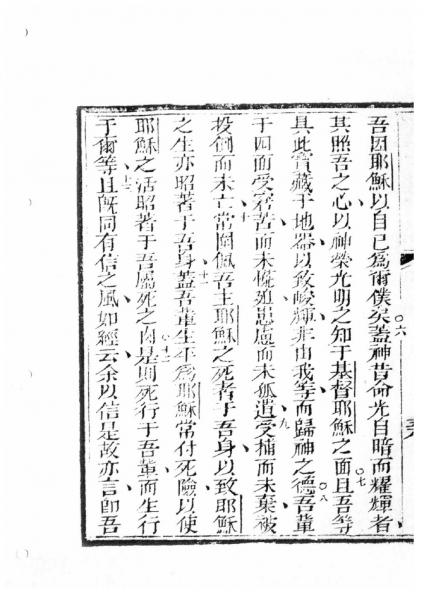 吾因耶穌以自己為爾僕矣○六蓋神昔命光自暗而耀輝者
其照吾之心以神榮光明之知于基督耶穌之面○七且吾等
具此寶藏于地器以致峻輝非由我等而歸神之德○八吾軰
于四面受窘苦而未慌迫患慮而未孤遺九受捕而未棄被
投倒而未亡十常關佩吾主耶穌之死者于吾身以致耶穌
之生亦昭著于吾身十一蓋吾軰生平為耶穌常付死險以使
耶穌之活昭著于吾屬死之肉十二是則死行于吾軰而生行
于爾等十三且既同有信之風如經云余以信是故亦言即吾